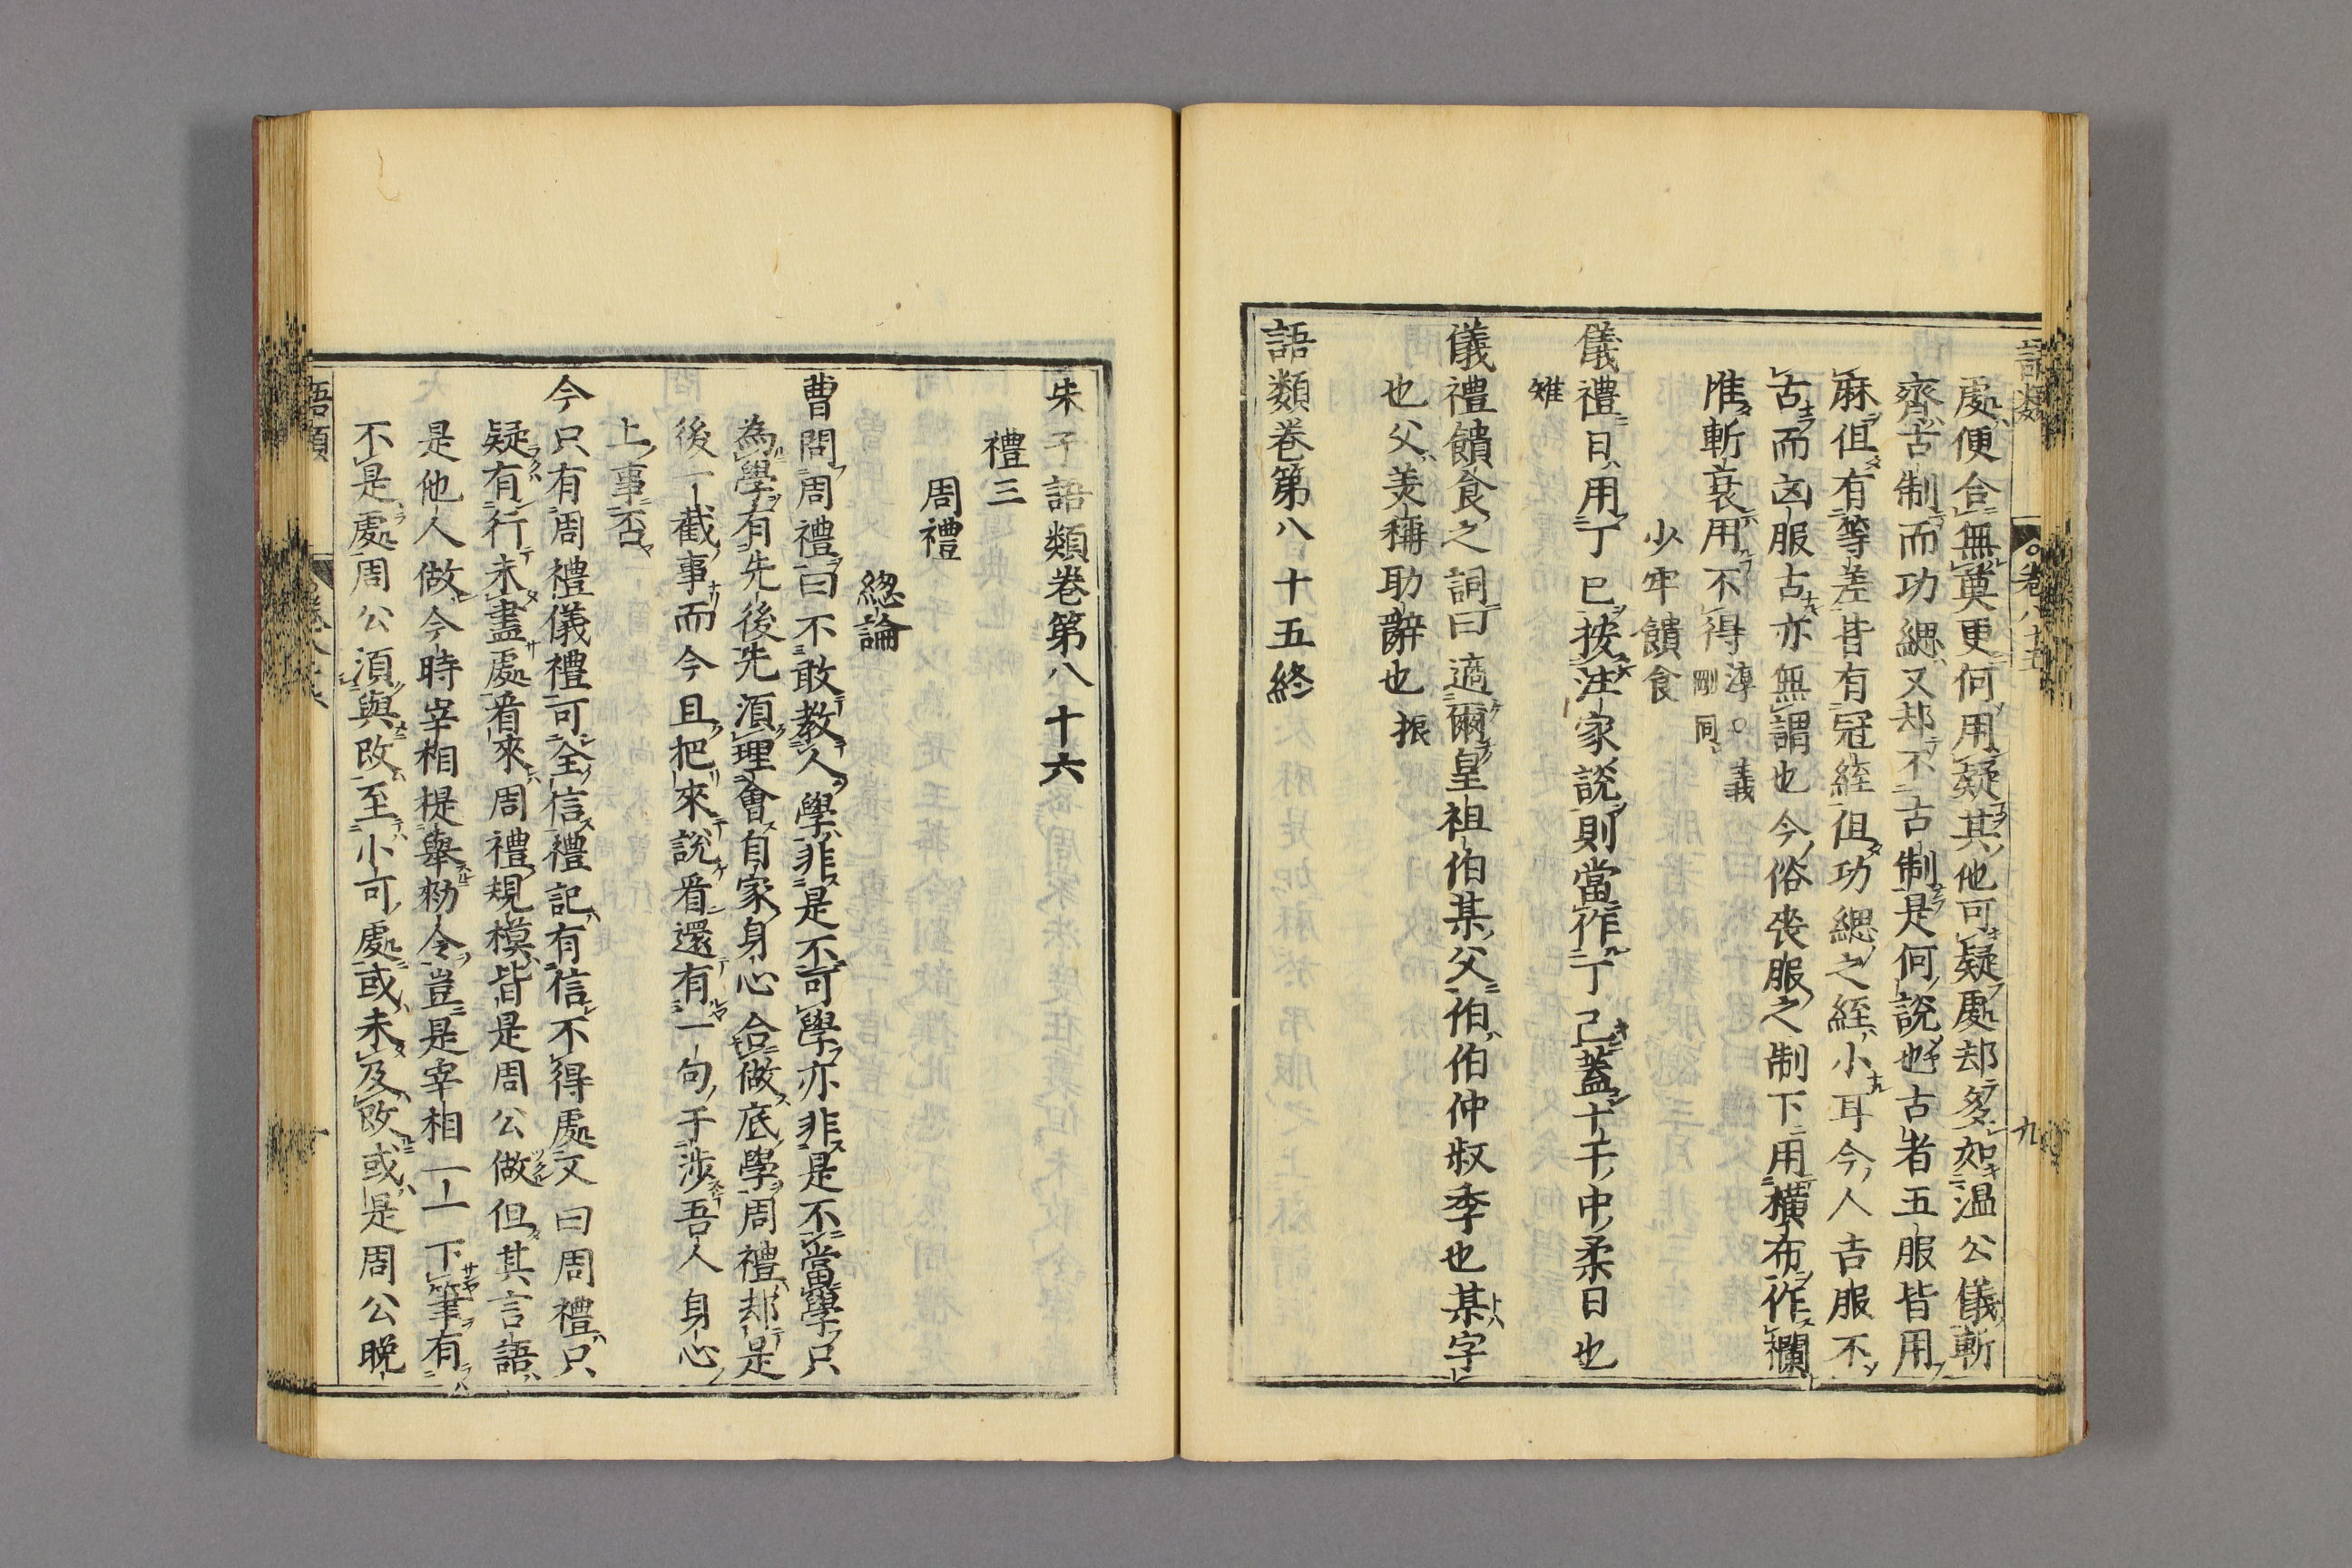 處便合無奠更何用疑其他可疑處却多如温公儀斬
齊古制而功緦又却不古制是何說也古者五服皆用
麻但有等差皆有冠絰但功緦之絰小耳今人吉服不
古而凶服古亦無謂也今俗喪服之制下用橫布作襴
惟斬衰用不得淳○義
剛同
少牢饋食
儀禮日用丁巳按注家說則當作丁己蓋十干中柔日也
雉
儀禮饋食之詞曰適爾皇祖伯某父伯伯仲叔季也某字
也父美稱助辭也振
語類卷第八十五終
朱子語類卷第八十六
禮三
周禮
緫論
曹問周禮曰不敢教人學非是不可學亦非是不當學只
為學有先後先湏理會自家身心合做底學周禮却是
後一截事而今且把來說看還有一句干涉吾人身心
上事否
今只有周禮儀禮可全信禮記有信不得處又曰周禮只
疑有行未盡處看來周禮規模皆是周公做但其言語
是他人做今時宰相提舉勑令豈是宰相一一下筆有
不是處周公湏與改至小可處或未及改或是周公晩